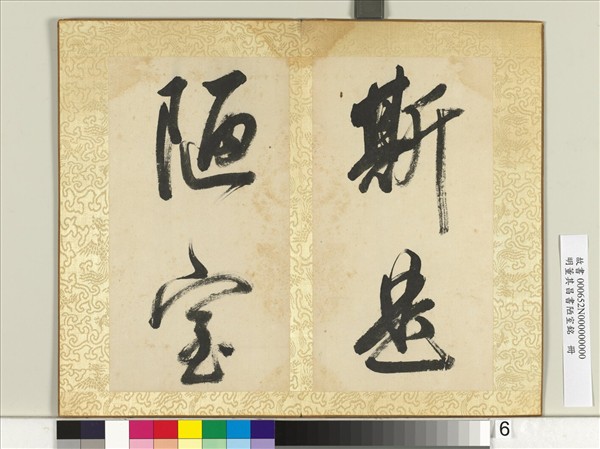 斯是
陋室
故書 000652N000000000
明董其昌書陋室銘 冊
6